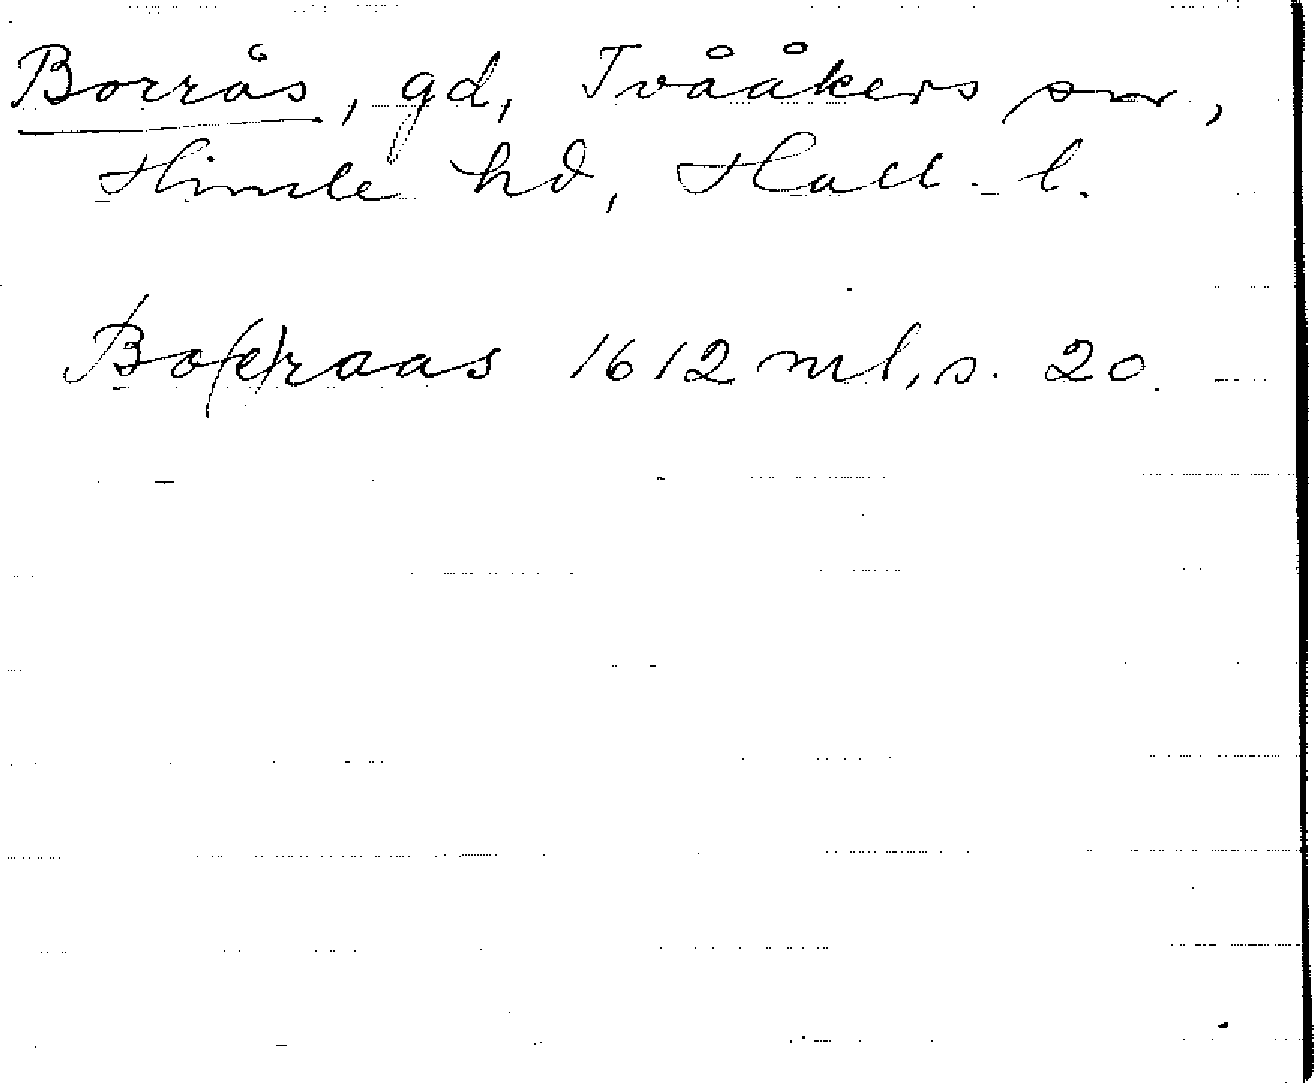 Borrås, gd, Tvååkers sn,
Himle hd, Hall. l.
Bo(e)raas 1612 ml, s. 20.